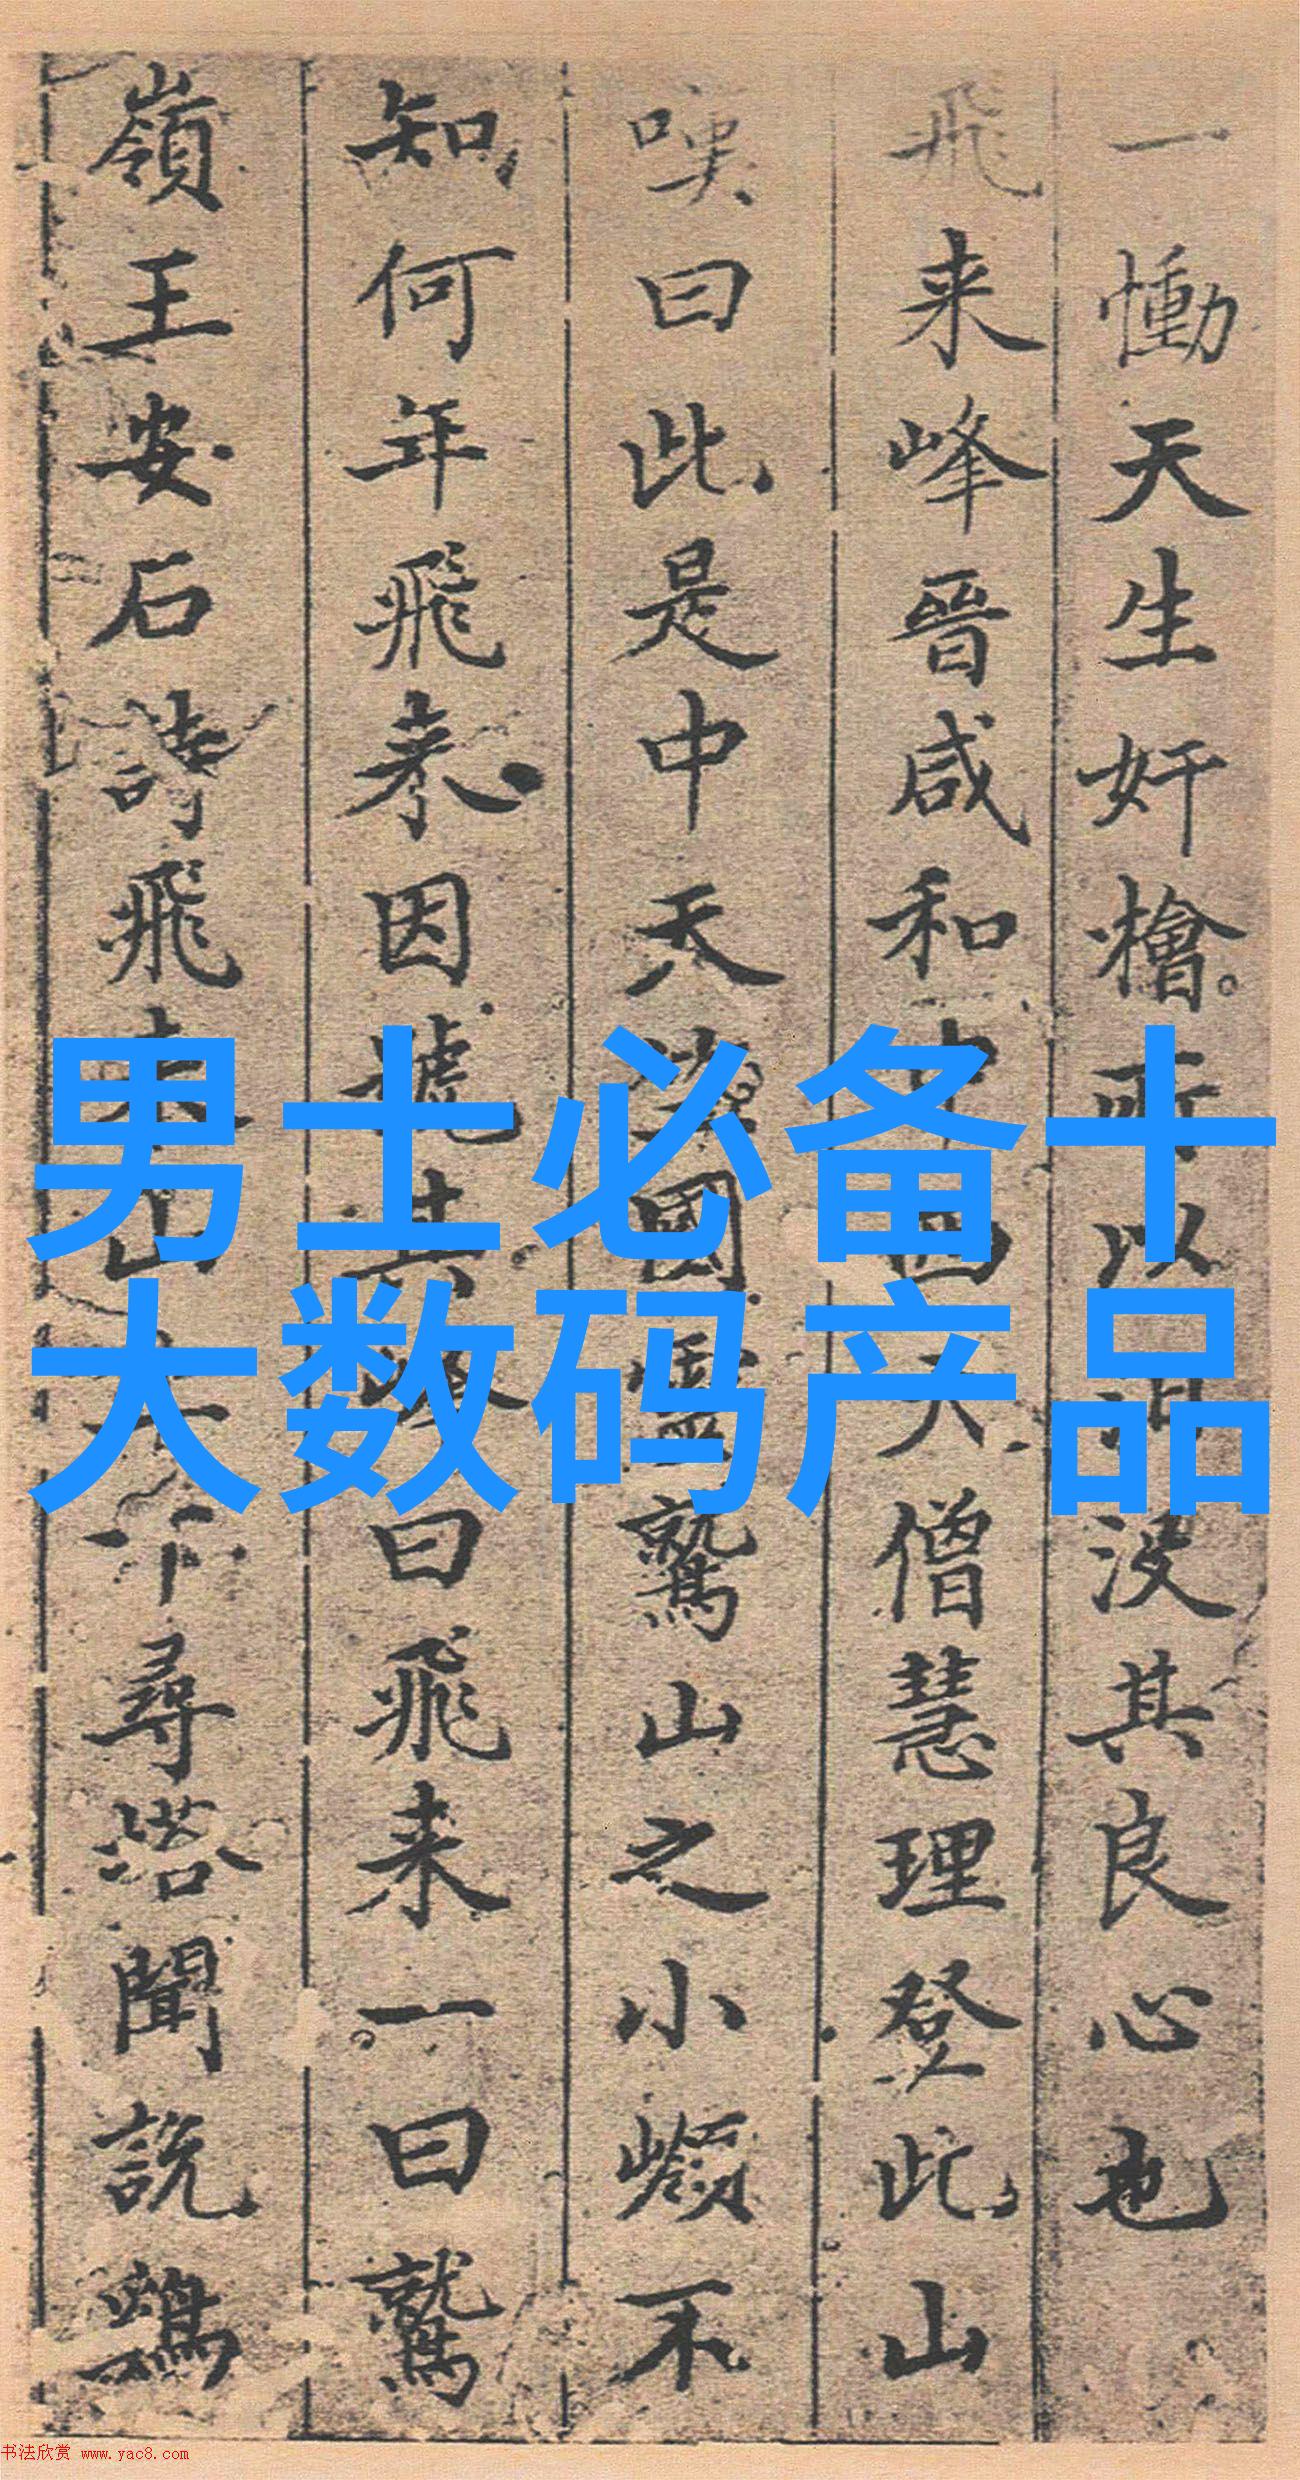 一慟天生奸檜所以汩没其良心也
飛来峰晉咸和中西天僧慧理登此山
嘆曰此是中天國靈鷲山之小嶺不
知何年飛来因號其峯曰飛来一曰鷲
嶺王安石詩飛来山上千尋塔聞説鷄
男士必备十
大数码产品
书法欣赏 www.yac8.com